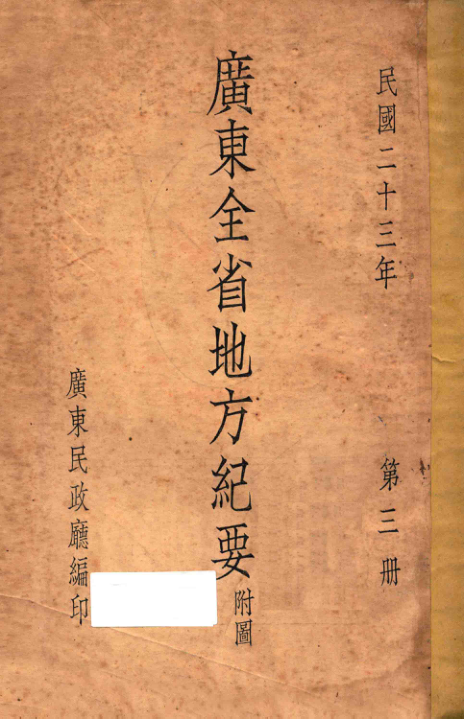 民國二十三年 第三册
廣東全省地方紀要 附圖
廣東民政廳編印